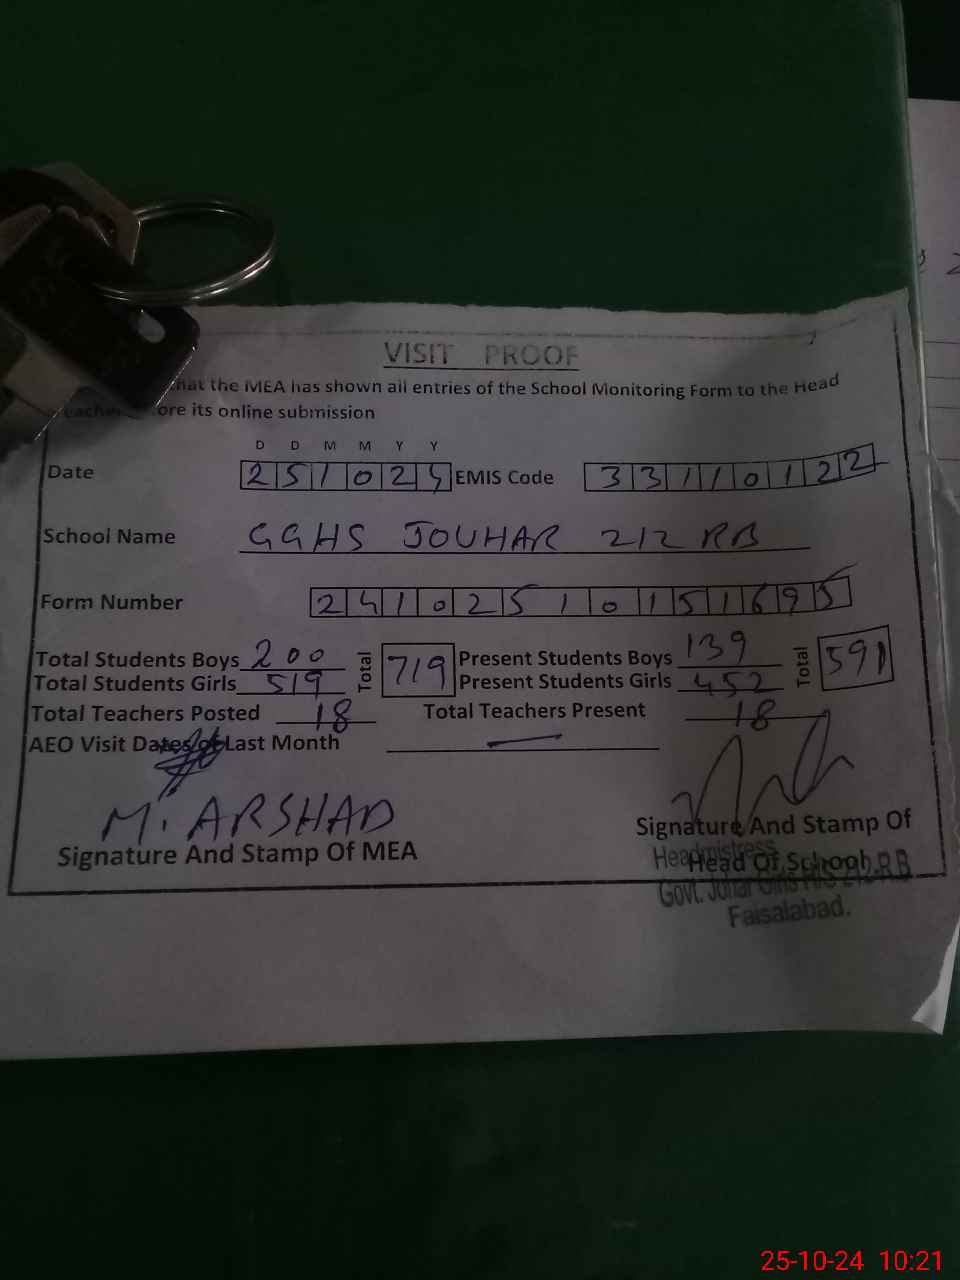 VISIT PROOF
that the MEA has shown all entries of the School Monitoring Form to the Head
its online submission
D D M M Y Y
Date 251024 EMIS Code 33110122
School Name GGHS JOUHAR 212 RB
Form Number 24102510151695
Total Students Boys 200 Total 719 Present Students Boys 139 Total 591
Total Students Girls 519 Present Students Girls 452
Total Teachers Posted 18 Total Teachers Present 18
AEO Visit Dates of Last Month —
M. ARSHAD
Signature And Stamp Of MEA
Signature And Stamp Of
Head Of School
Headmistress
Govt. Johar Girls H/S 212-R.B
Faisalabad.
25-10-24 10:21